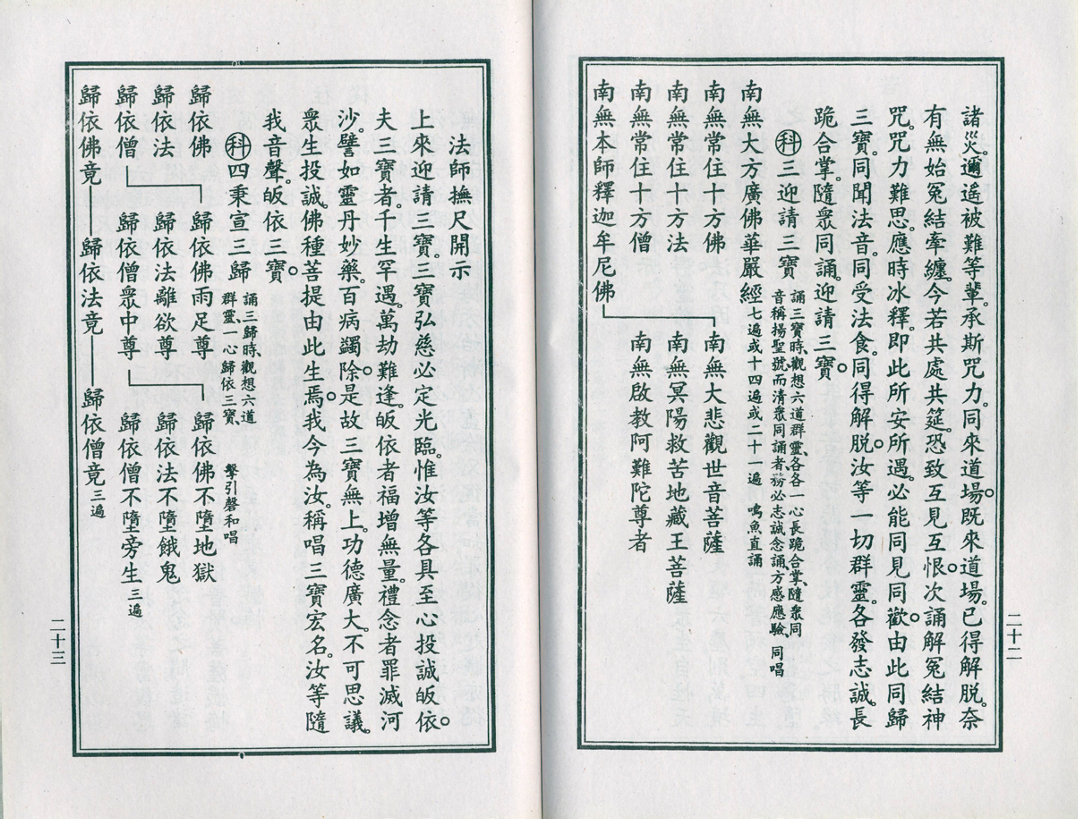 諸災。邇遙被難等輩。承斯咒力。同來道場。既來道場。已得解脫。奈
有無始冤結牽纏。今若共處共筵。恐致互見互恨。次誦解冤結神
咒。咒力難思。應時冰釋。即此所安所遇。必能同見同歡。由此同歸
三寶。同聞法音。同受法食。同得解脫。汝等一切群靈。各發志誠。長
跪合掌。隨眾同誦。迎請三寶。
科三迎請三寶
誦三寶時、觀想六道群靈、各各一心長跪合掌、隨眾同
音稱揚聖號而清眾同誦者務必志誠念誦方感應驗、同唱
南無大方廣佛華嚴經七遍或十四遍或二十一遍 鳴魚直誦
南無常住十方佛
南無常住十方法
南無常住十方僧
南無本師釋迦牟尼佛
南無大悲觀世音菩薩
南無冥陽救苦地藏王菩薩
南無啟教阿難陀尊者
二十二
法師撫尺開示
上來迎請三寶。三寶弘慈必定光臨。惟汝等各具至心投誠皈依。
夫三寶者。千生罕遇。萬劫難逢。皈依者福增無量。禮念者罪滅河
沙。譬如靈丹妙藥。百病蠲除。是故三寶無上。功德廣大。不可思議。
眾生投誠。佛種菩提由此生焉。我今為汝。稱唱三寶宏名。汝等隨
我音聲。皈依三寶。
科四秉宣三歸
誦三歸時、觀想六道
群靈、一心歸依三寶、
擊引磬和唱
歸依佛
歸依法
歸依僧
歸依佛兩足尊
歸依法離欲尊
歸依僧眾中尊
歸依佛不墮地獄
歸依法不墮餓鬼
歸依僧不墮旁生三遍
歸依佛竟──歸依法竟──歸依僧竟三遍
二十三